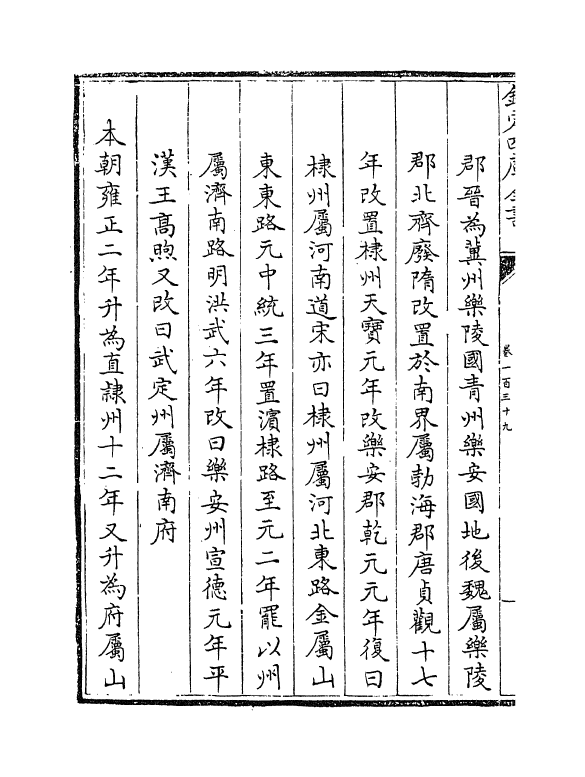 欽定四庫全書
卷一百三十九
一
郡晉為冀州樂陵國青州樂安國地後魏屬樂陵
郡北齊廢隋改置於南界屬勃海郡唐貞觀十七
年改置棣州天寶元年改樂安郡乾元元年復曰
棣州屬河南道宋亦曰棣州屬河北東路金屬山
東東路元中統三年置濱棣路至元二年罷以州
屬濟南路明洪武六年改曰樂安州宣德元年平
漢王高煦又改曰武定州屬濟南府
本朝雍正二年升為直隸州十二年又升為府屬山